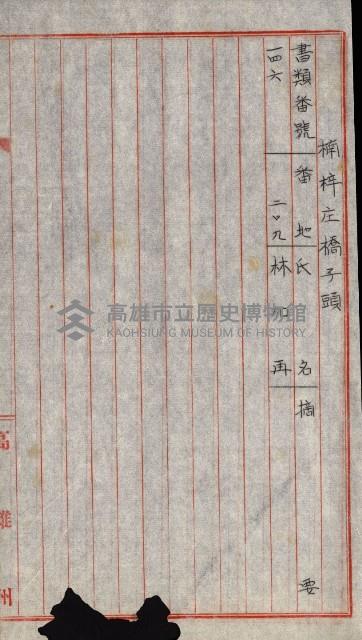 楠梓庄橋子頭
書類番號 番地 氏名 摘要
一四六 二〇九 林 再
高雄市立歷史博物館
KAOHSIUNG MUSEUM OF HISTORY
高雄州